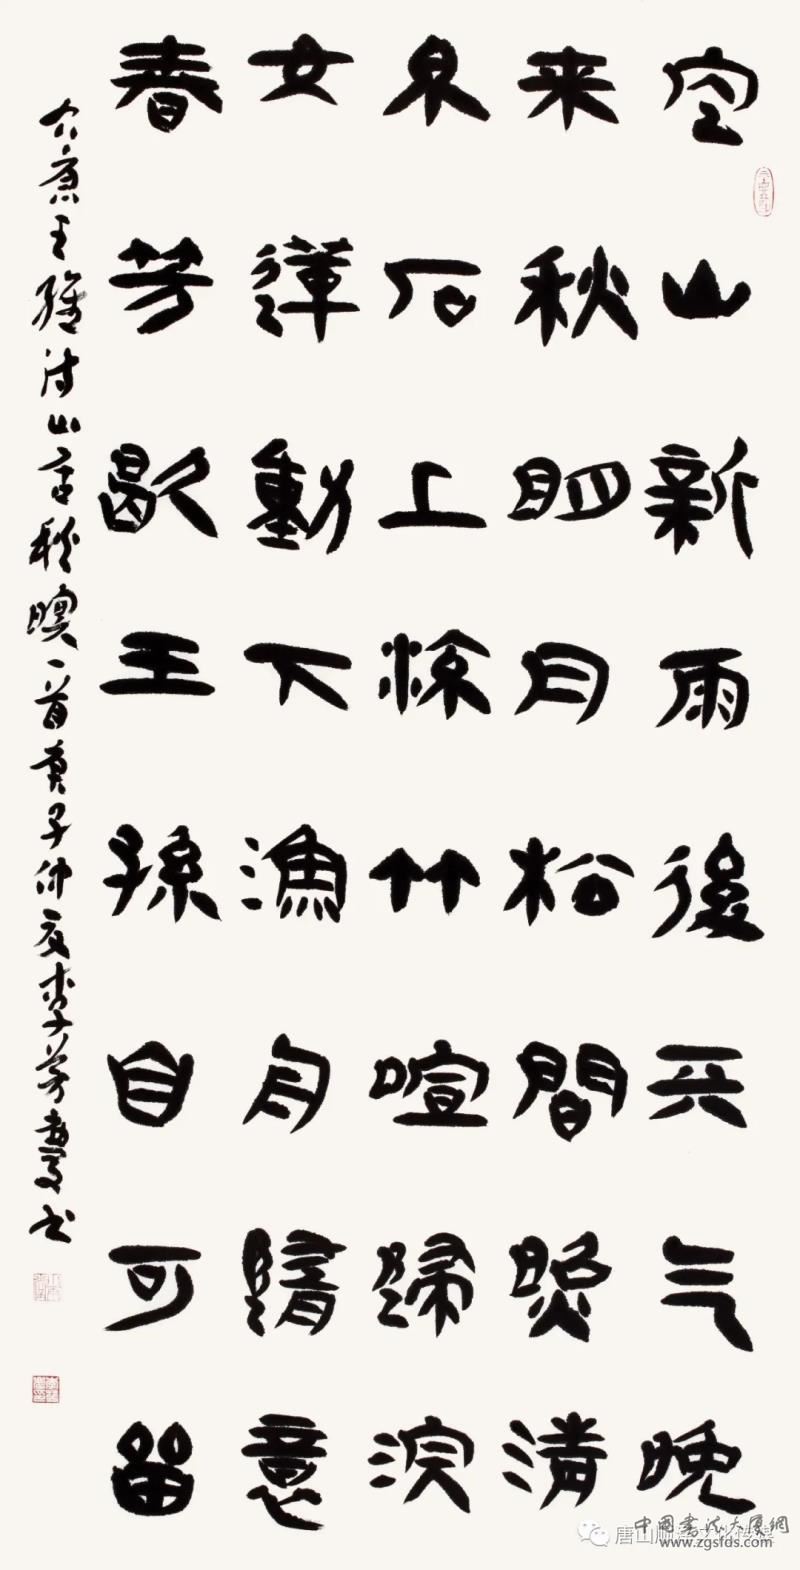 空山新雨後天气晚
来秋明月松間照清
泉石上流竹喧歸浣
女蓮動下漁舟隨意
春芳歇王孫自可留
右唐王維诗山居秋暝一首庚子仲夏李芳书
唐山
中國書法大厦網
www.zgsfds.com